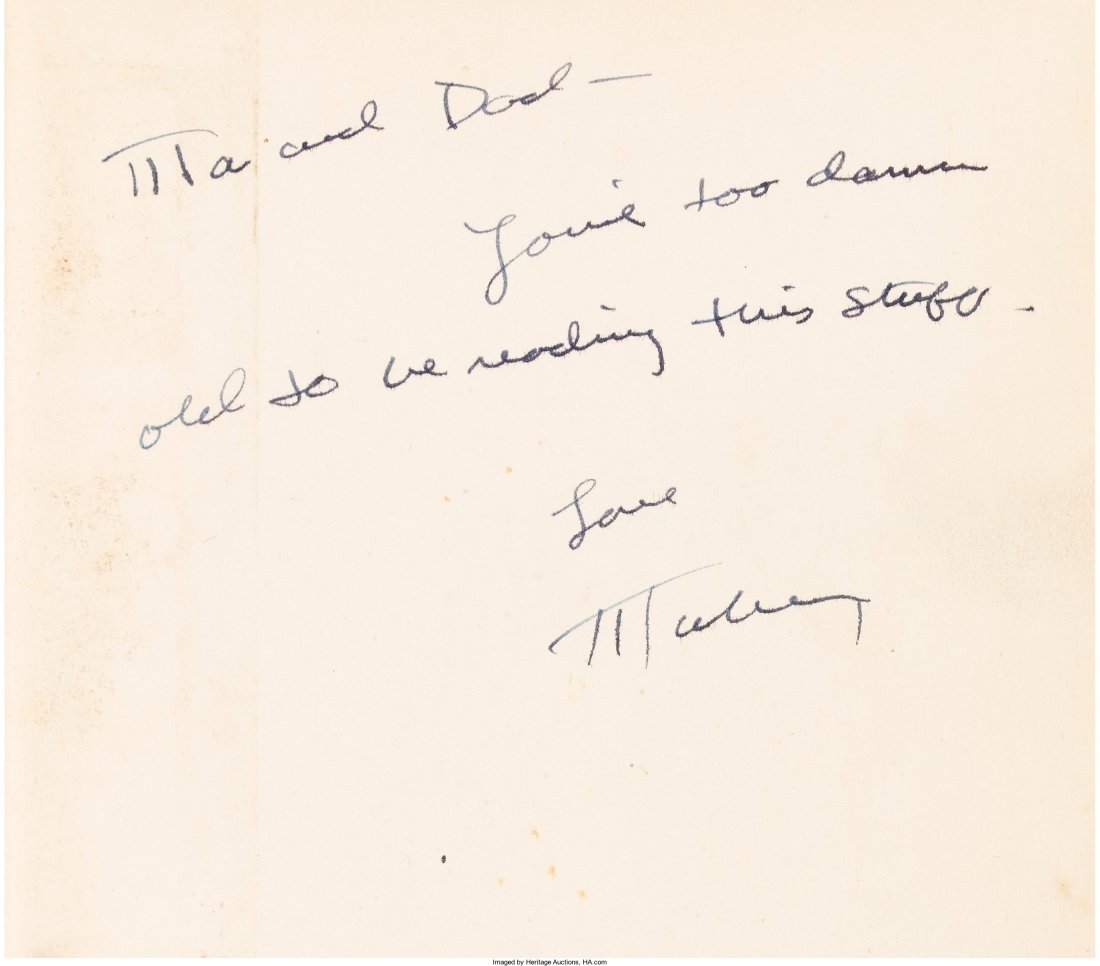 Ma and Dad —
You're too damn
old to be reading this stuff.
Love
Imaged by Heritage Auctions, HA.com